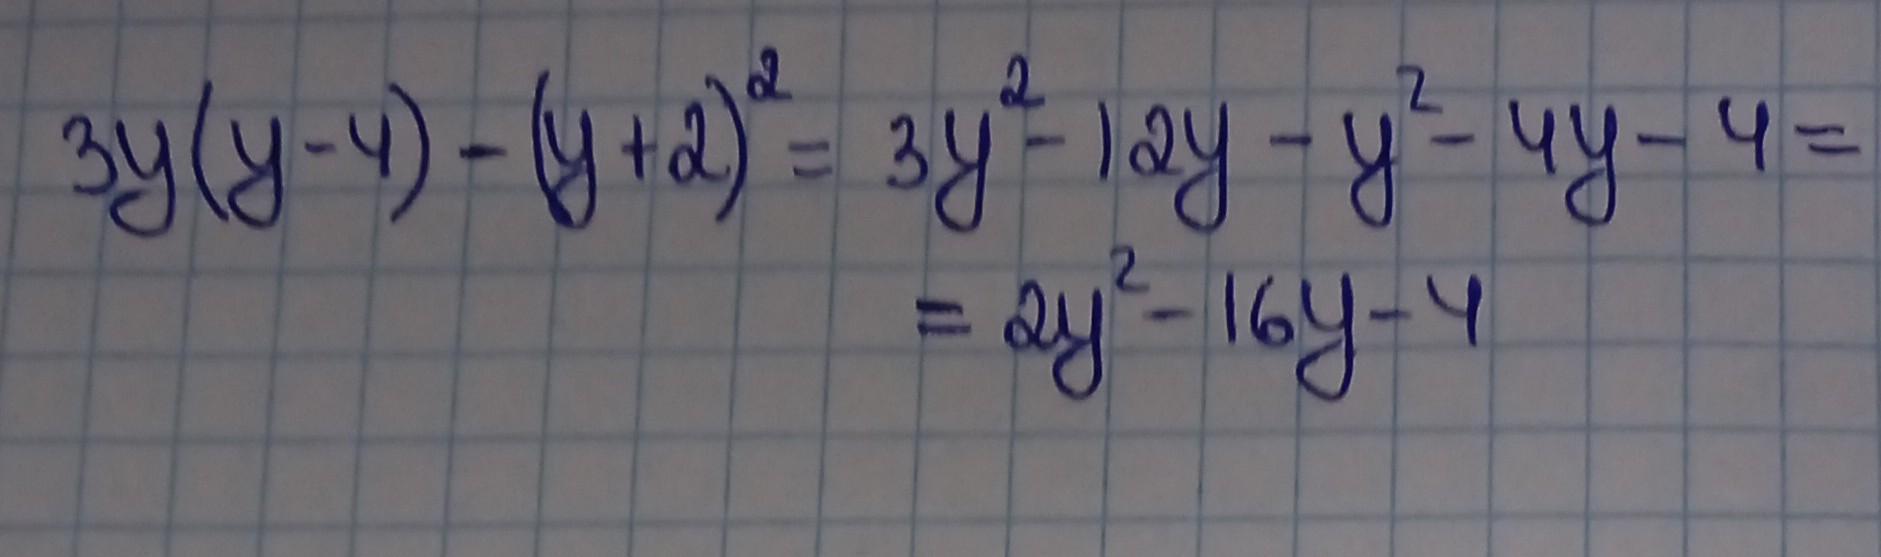 3y(y-4)-(y+2)²=3y²-12y-y²-4y-4=
=2y²-16y-4